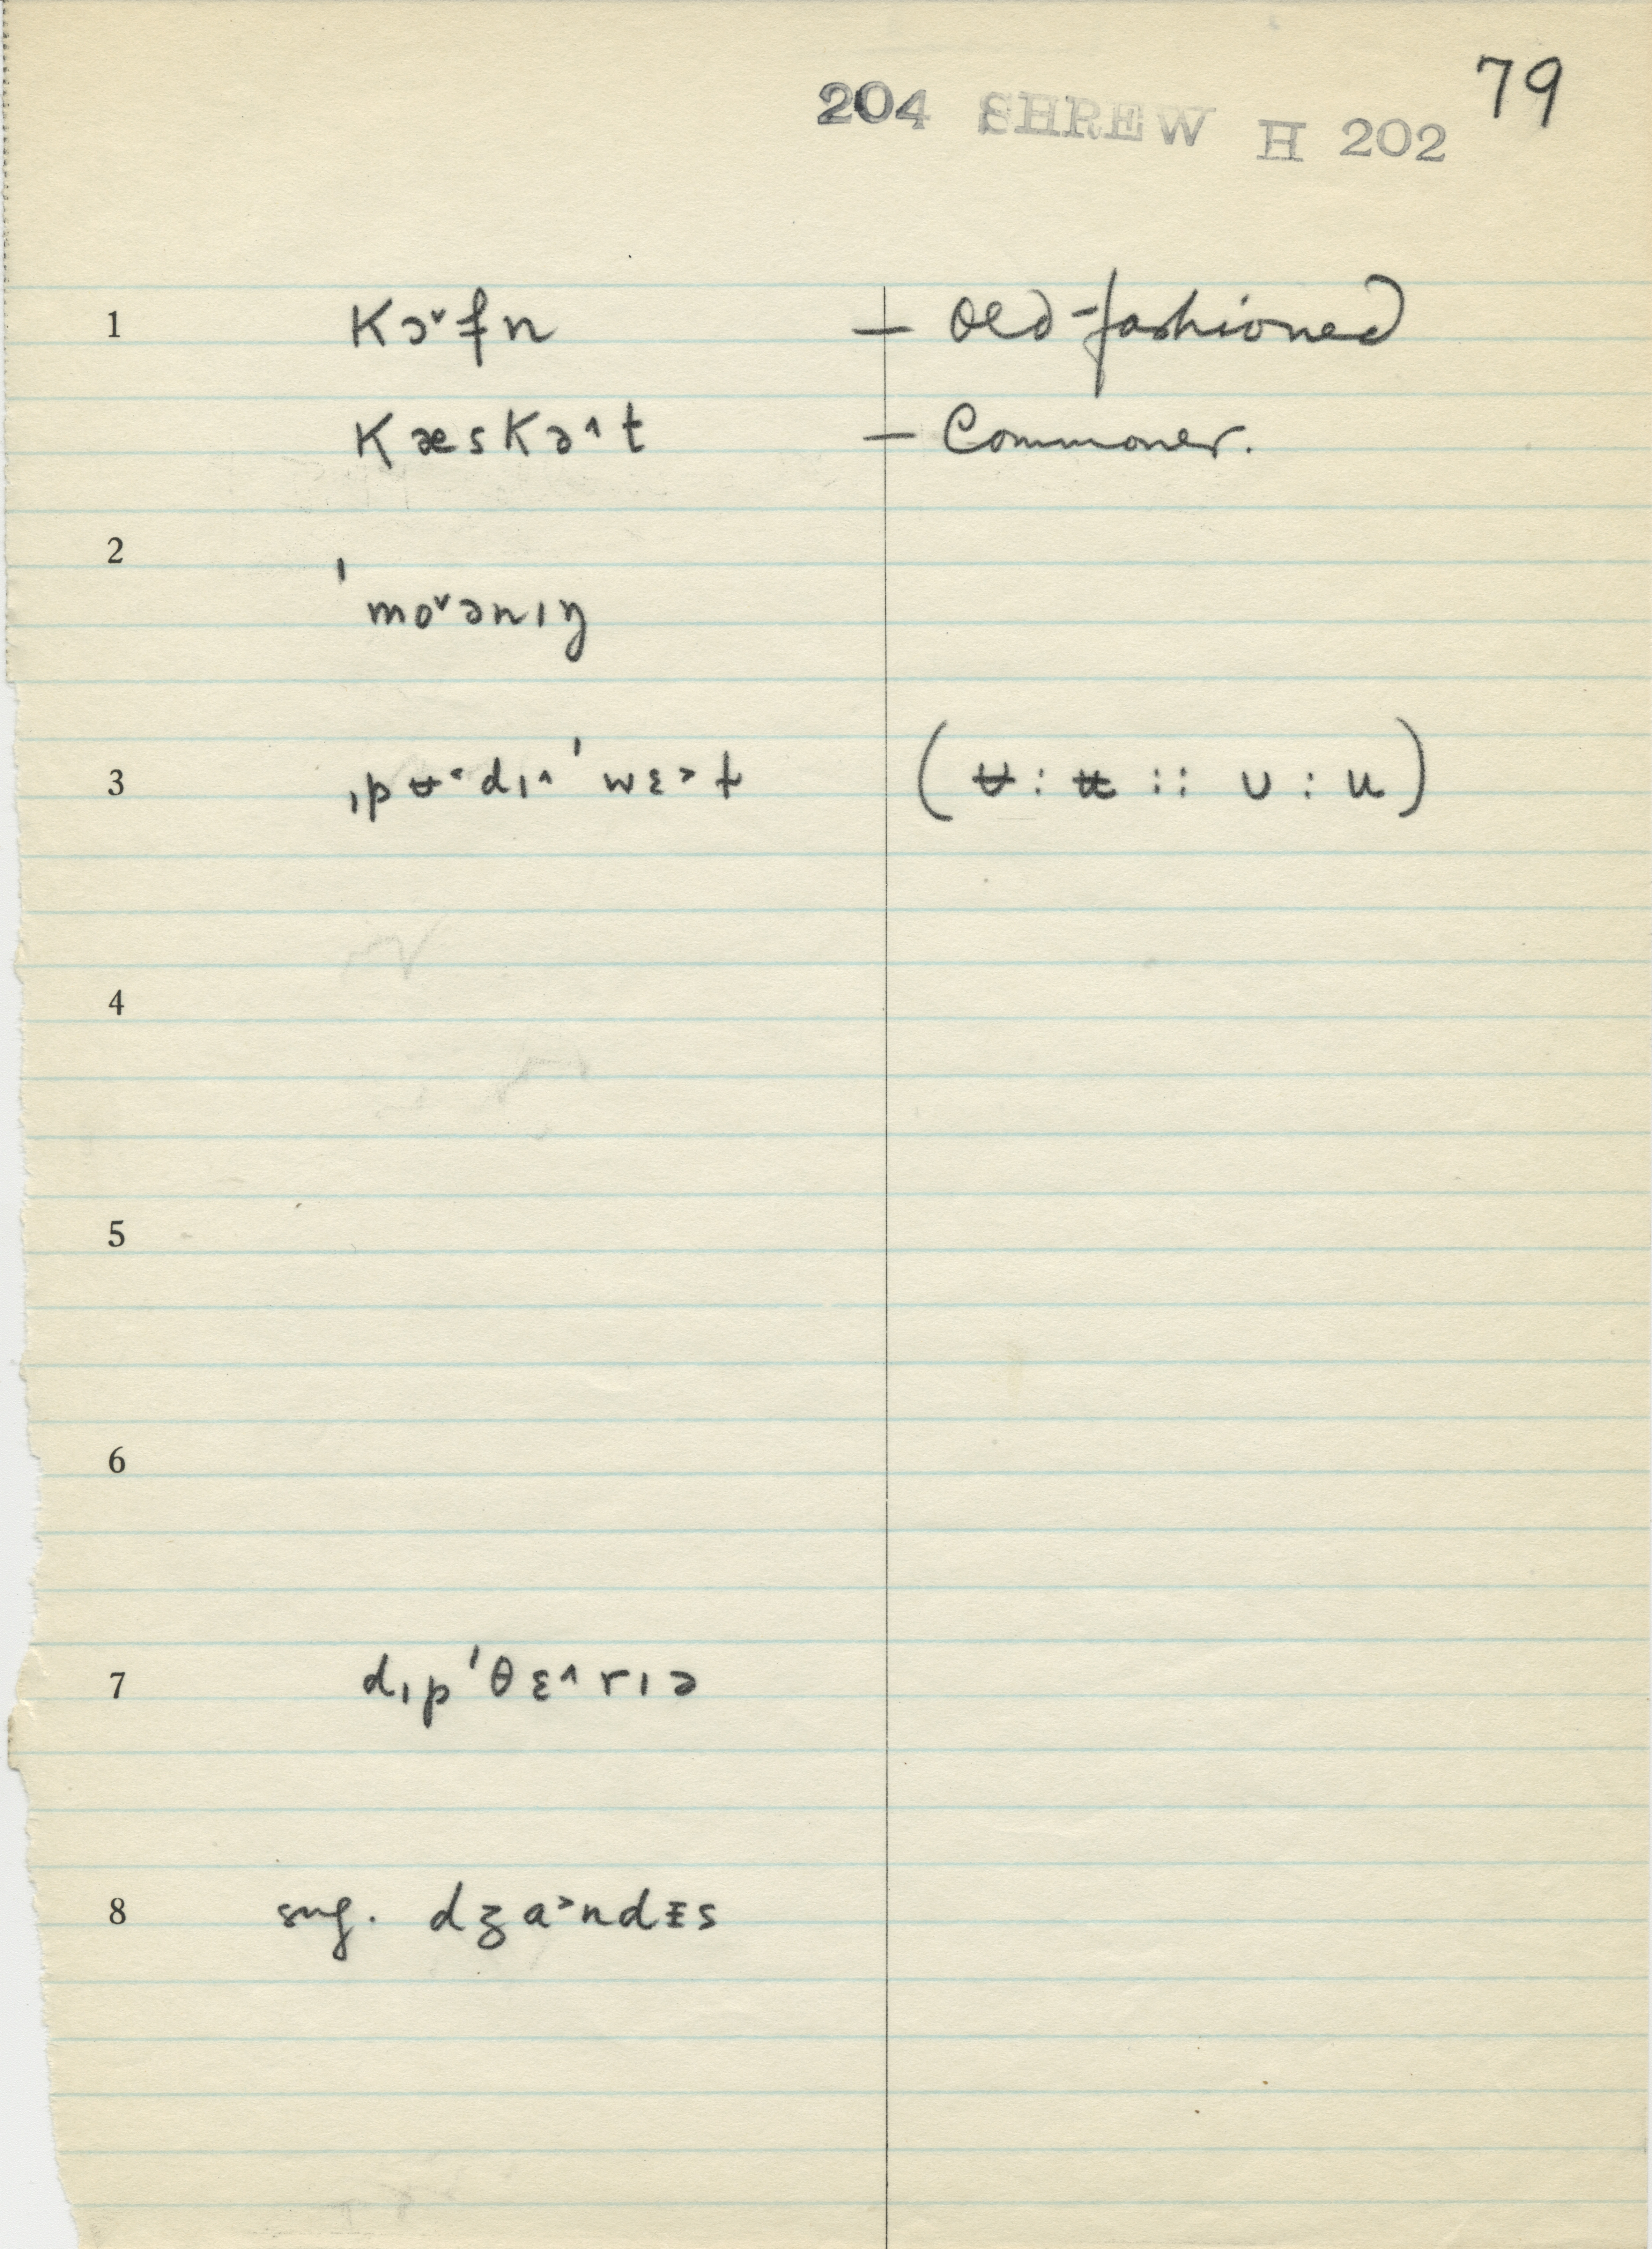 79
204 SHREW H 202
1 kɔ˅fn — Old-fashioned
kæskə˄t — Commoner.
2 ˈmo˅ənɪŋ
3 ˌpʉ˂dɪ˄ˈwɛ˃ɫ (ᵾ : ʉ :: ᴜ : u)
4
5
6
7 dɪpˈθɛ˄rɪə
8 sug. dʒa˃ndɪs